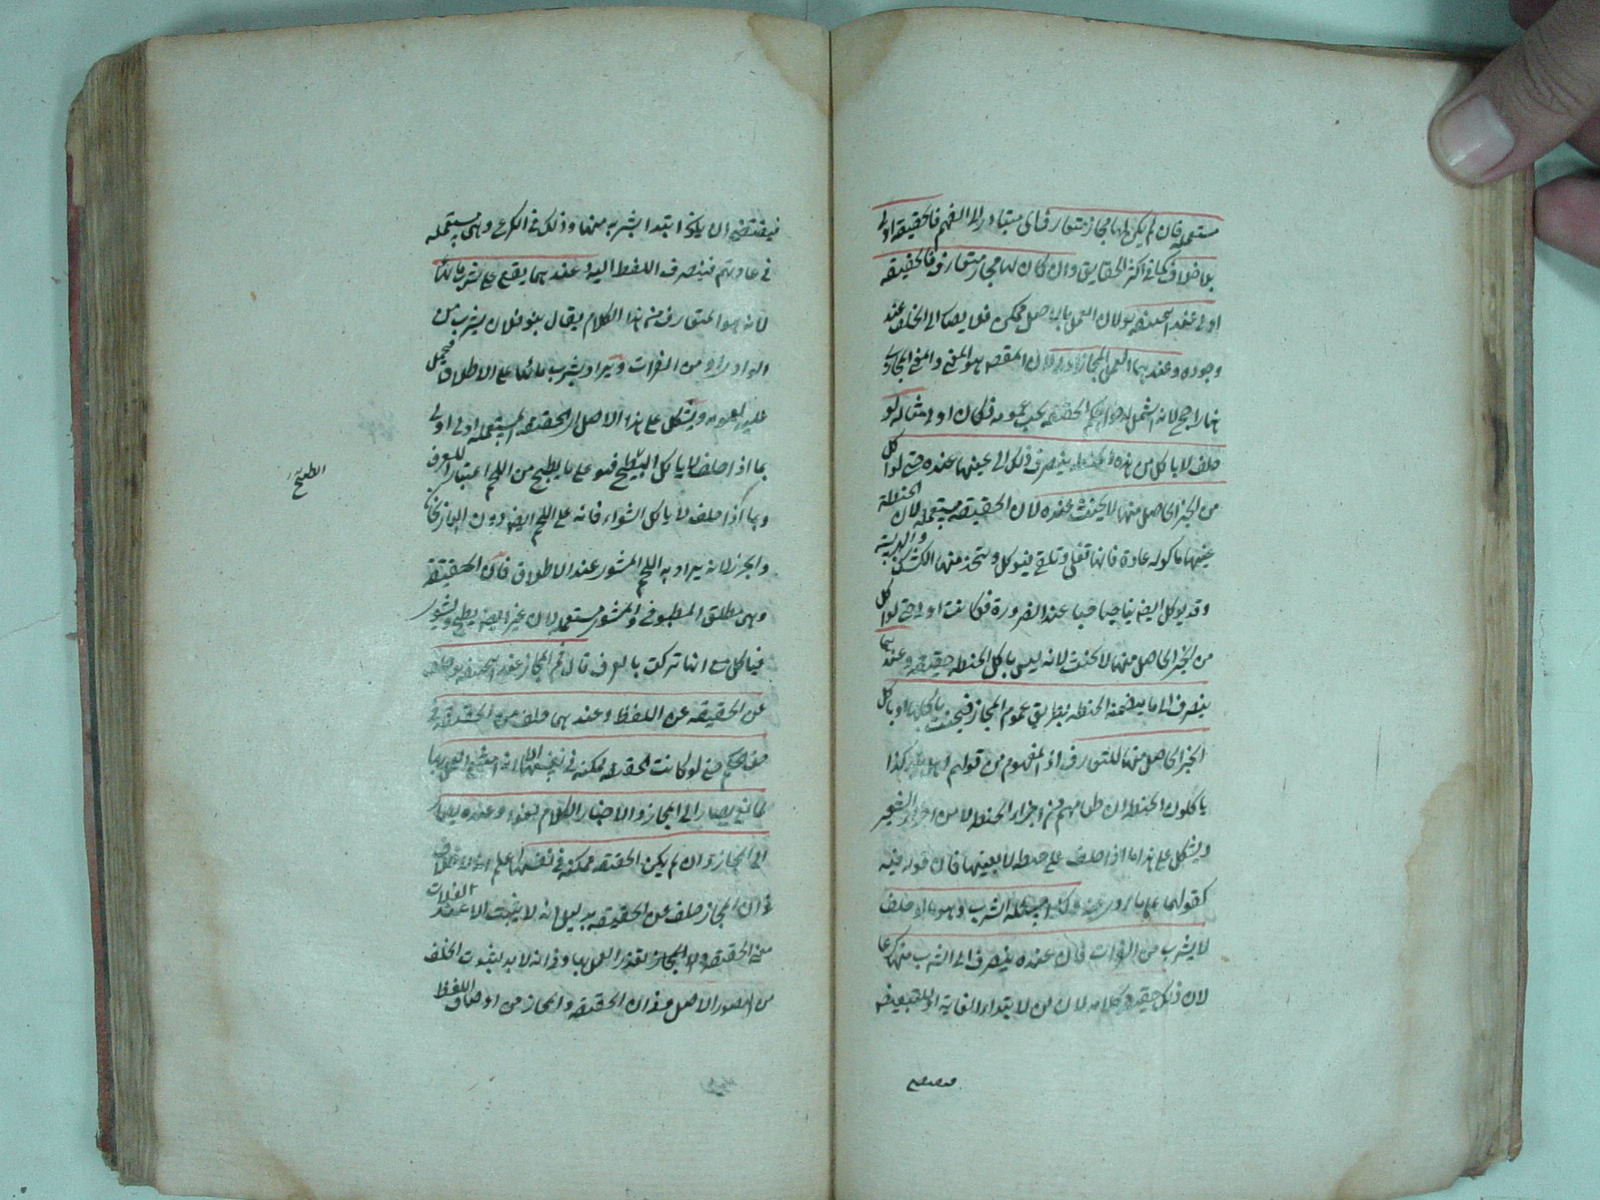 مستعملة فان لم يكن لها مجاز متعارف اى متبادر الى الفهم فالحقيقة اولى
بلا خلاف كما فى اكثر الحقايق وان كان لها مجاز متعارف فالحقيقة
اولى عند ابيحنيفه لان العمل بالاصل ممكن فلا يصار الى الخلف عند
وجوده وعندهما العمل بالمجاز اولى لان المقص هو المعنى والمعنى المجازى
هنا راجح لانه اشمل لدخول حكم الحقيقة تحت عمومه فكان اولى مثاله لو
حلف لا ياكل من هذه الحنطة ينصرف ذلك الى عينها عنده حتى لو اكل
من الخبز الحاصل منها لا يحنث عنده لان الحقيقة مستعملة لان الحنطة
عينها ماكولة عادة فانها تقلى وتلقى فيوكل ويتخذ منها الكشك والهريسة
وقد يوكل ايضا نيا حبا حبا عند الضرورة فكانت اولى حتى لو اكل
من الخبز الحاصل منها لا يحنث لانه ليس باكل الحنطة حقيقة وعندهما
ينصرف الى ما يتضمنه الحنطة بطريق عموم المجاز فيحنث باكلها او باكل
الخبز الحاصل منها للتعارف اذ المفهوم من قولهم اهل بلد كذا
ياكلون الحنطة ان طعامهم من اجزاء الحنطة لا من اجزاء الشعير
ويشكل على هذا ما اذا حلف على حنطة لا بعينها فان قوله فيه
كقولهما على ما روى عنه وكذا مسئلة الشرب وهو ما اذا حلف
لا يشرب من الفرات فان عنده ينصرف الى الشرب منها كرعا
لان ذلك حقيقة كلامه لان من لابتداء الغاية او للتبعيض
فيقتضى
فيقتضى ان يكون ابتداء شربه منها وذلك فى الكرع وهى مستعملة
فى عادتهم فينصرف اللفظ اليه وعندهما يقع على شرب مائها
لانه هو المتعارف من هذا الكلام يقال بنو فلان يشرب من
الوادى او من الفرات ويراد شرب مائها على الاطلاق فيحمل
عليه لعمومه ويشكل على هذا الاصل ان الحقيقة المستعملة اولى
بما اذا حلف لا ياكل الطبيخ فهو على ما يطبخ من اللحم اعتبارا للعرف
الطبيخ
وبما اذا حلف لا ياكل الشواء فانه على اللحم ايضا دون الباذنجان
والجزر لانه يراد به اللحم المشوى عند الاطلاق فان الحقيقة
وهى مطلق المطبوخ والمشوى مستعملة لان غير اللحم يطبخ ويشوى
فياكل مع انها تركت بالعرف قال ثم المجاز عند ابيحنيفه خلف
عن الحقيقة عن اللفظ وعندهما خلف عن الحقيقة فى
حق الحكم حتى لو كانت الحقيقة ممكنة فى نفسها الا انه امتنع العمل بها
لمانع يصار الى المجاز والا صار الكلام لغوا وعنده يصار
الى المجاز وان لم يكن الحقيقة ممكنة فى نفسها اعلم انه لا خلاف
فى ان المجاز خلف عن الحقيقة بدليل انه لا يثبت الا عند فوات
معنى الحقيقة او تعذر العمل بها وفى انه لا بد لثبوت الخلف
من تصور الاصل وفى ان الحقيقة والمجاز من اوصاف اللفظ